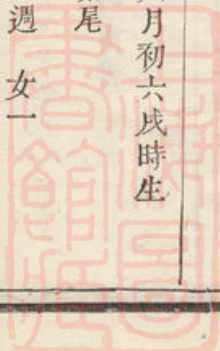 月初六戌時生
尾
週 女一